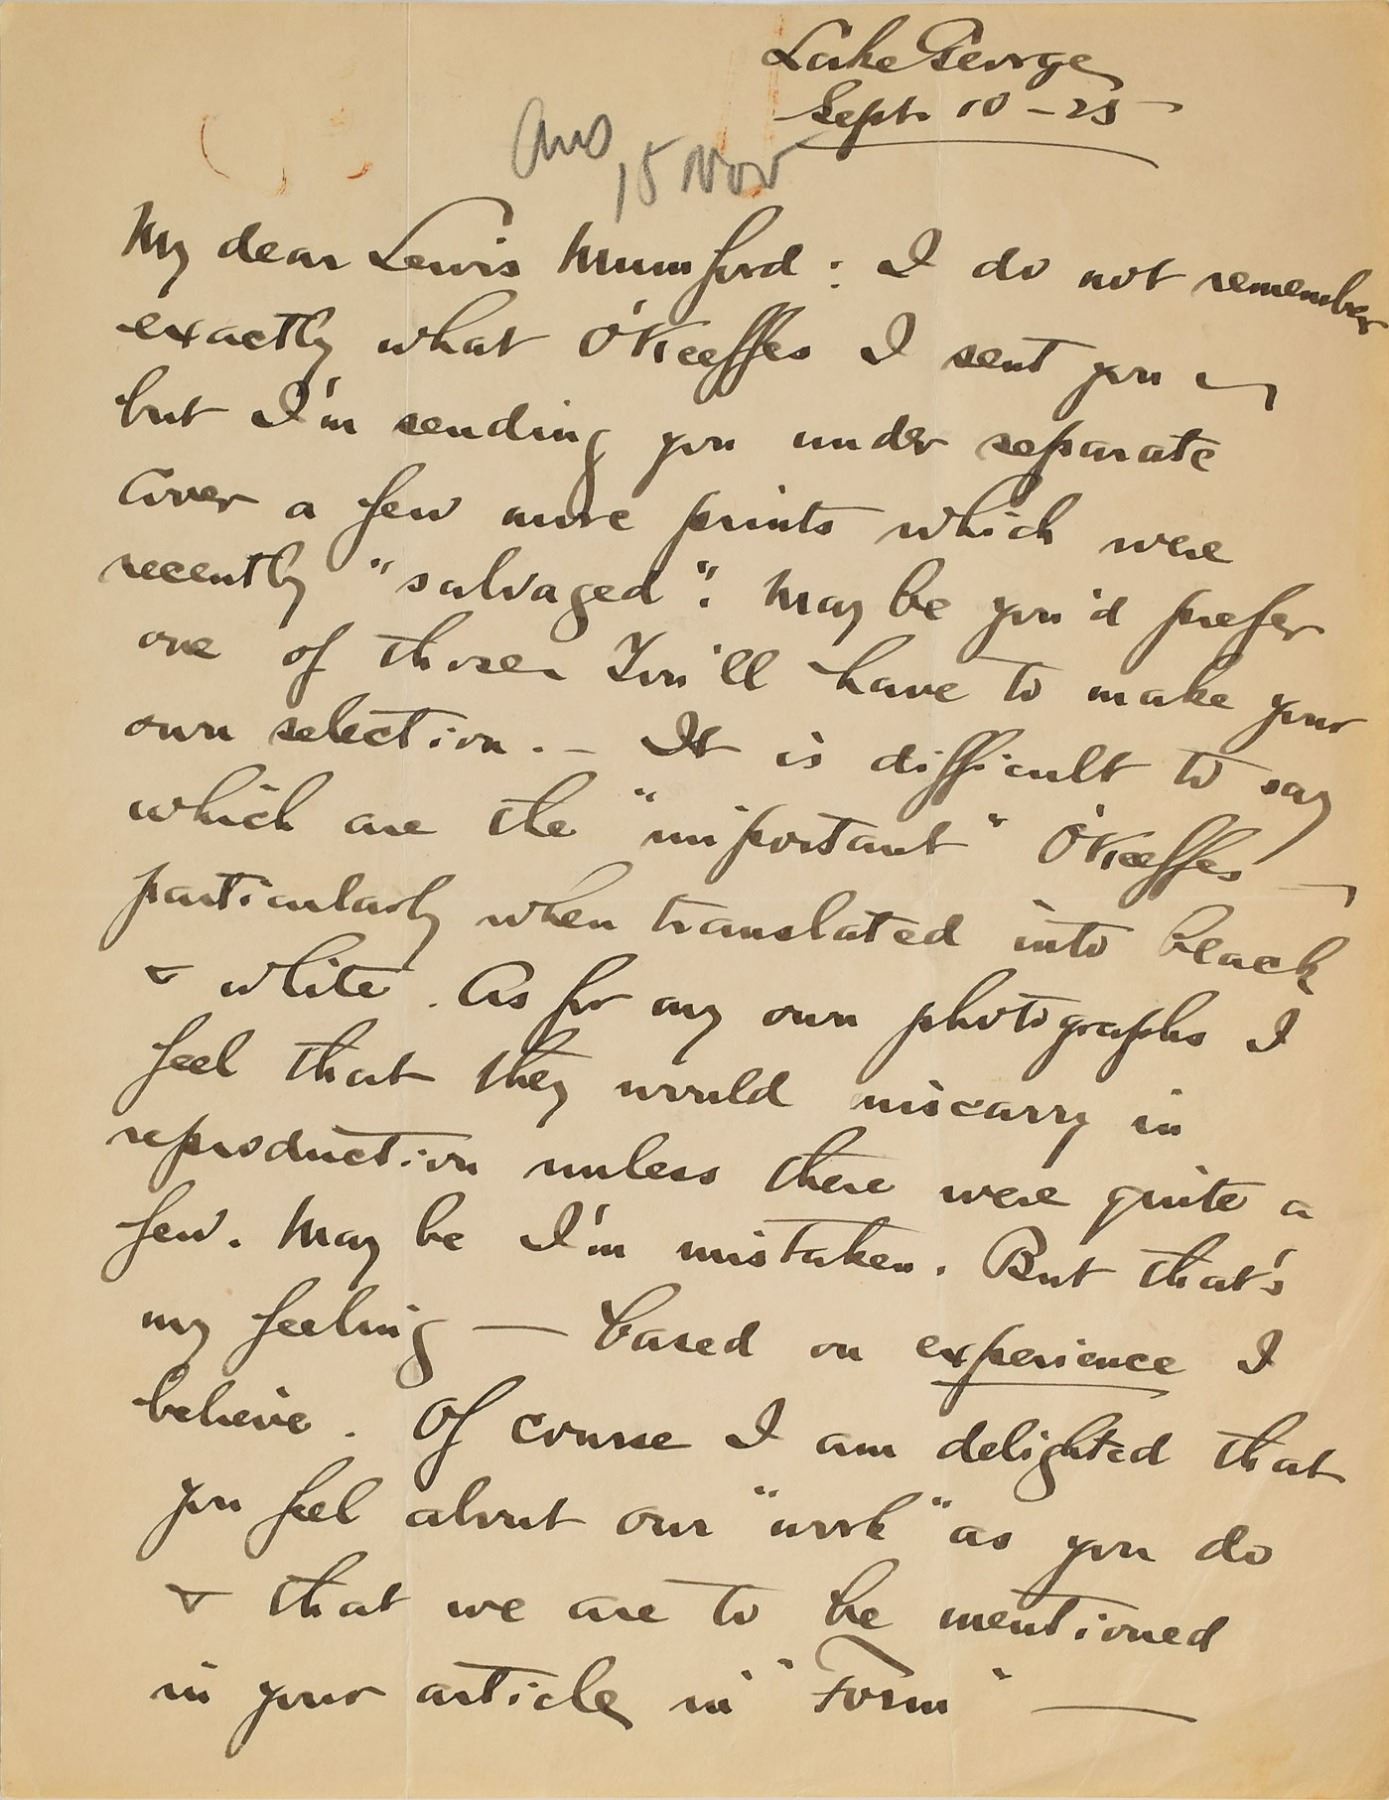 Lake George
Sept. 10 – 25
Ans
15 Nov
My dear Lewis Mumford: I do not remember
exactly what O'Keeffes I sent you —
but I'm sending you under separate
cover a few more prints which were
recently "salvaged". May be you'd prefer
one of those. You'll have to make your
own selection. – It is difficult to say
which are the "important" O'Keeffes —
particularly when translated into black
& white. As for my own photographs I
feel that they would miscarry in
reproduction unless there were quite a
few. May be I'm mistaken. But that's
my feeling — based on experience I
believe. Of course I am delighted that
you feel about our "work" as you do
& that we are to be mentioned
in your article in "Form" —